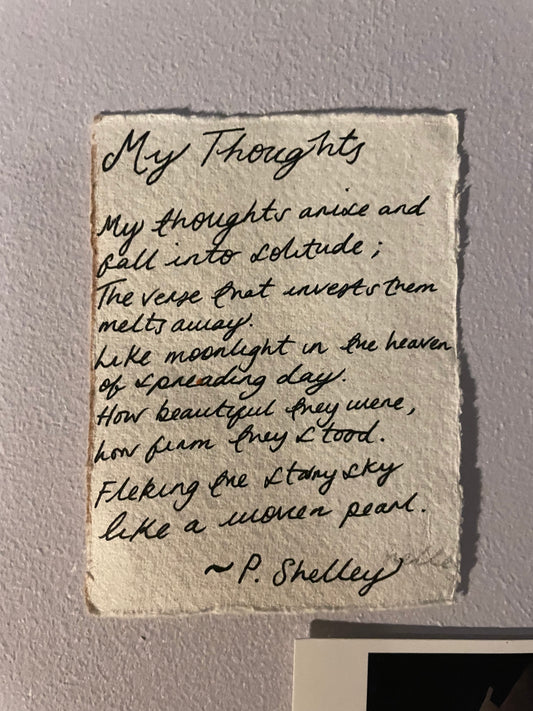 My Thoughts
My thoughts arise and
fall into solitude;
The verse that invests them
melts away.
Like moonlight in the heaven
of spreading day.
How beautiful they were,
how firm they stood.
Fleking the starry sky
like a woven pearl.
~ P. Shelley